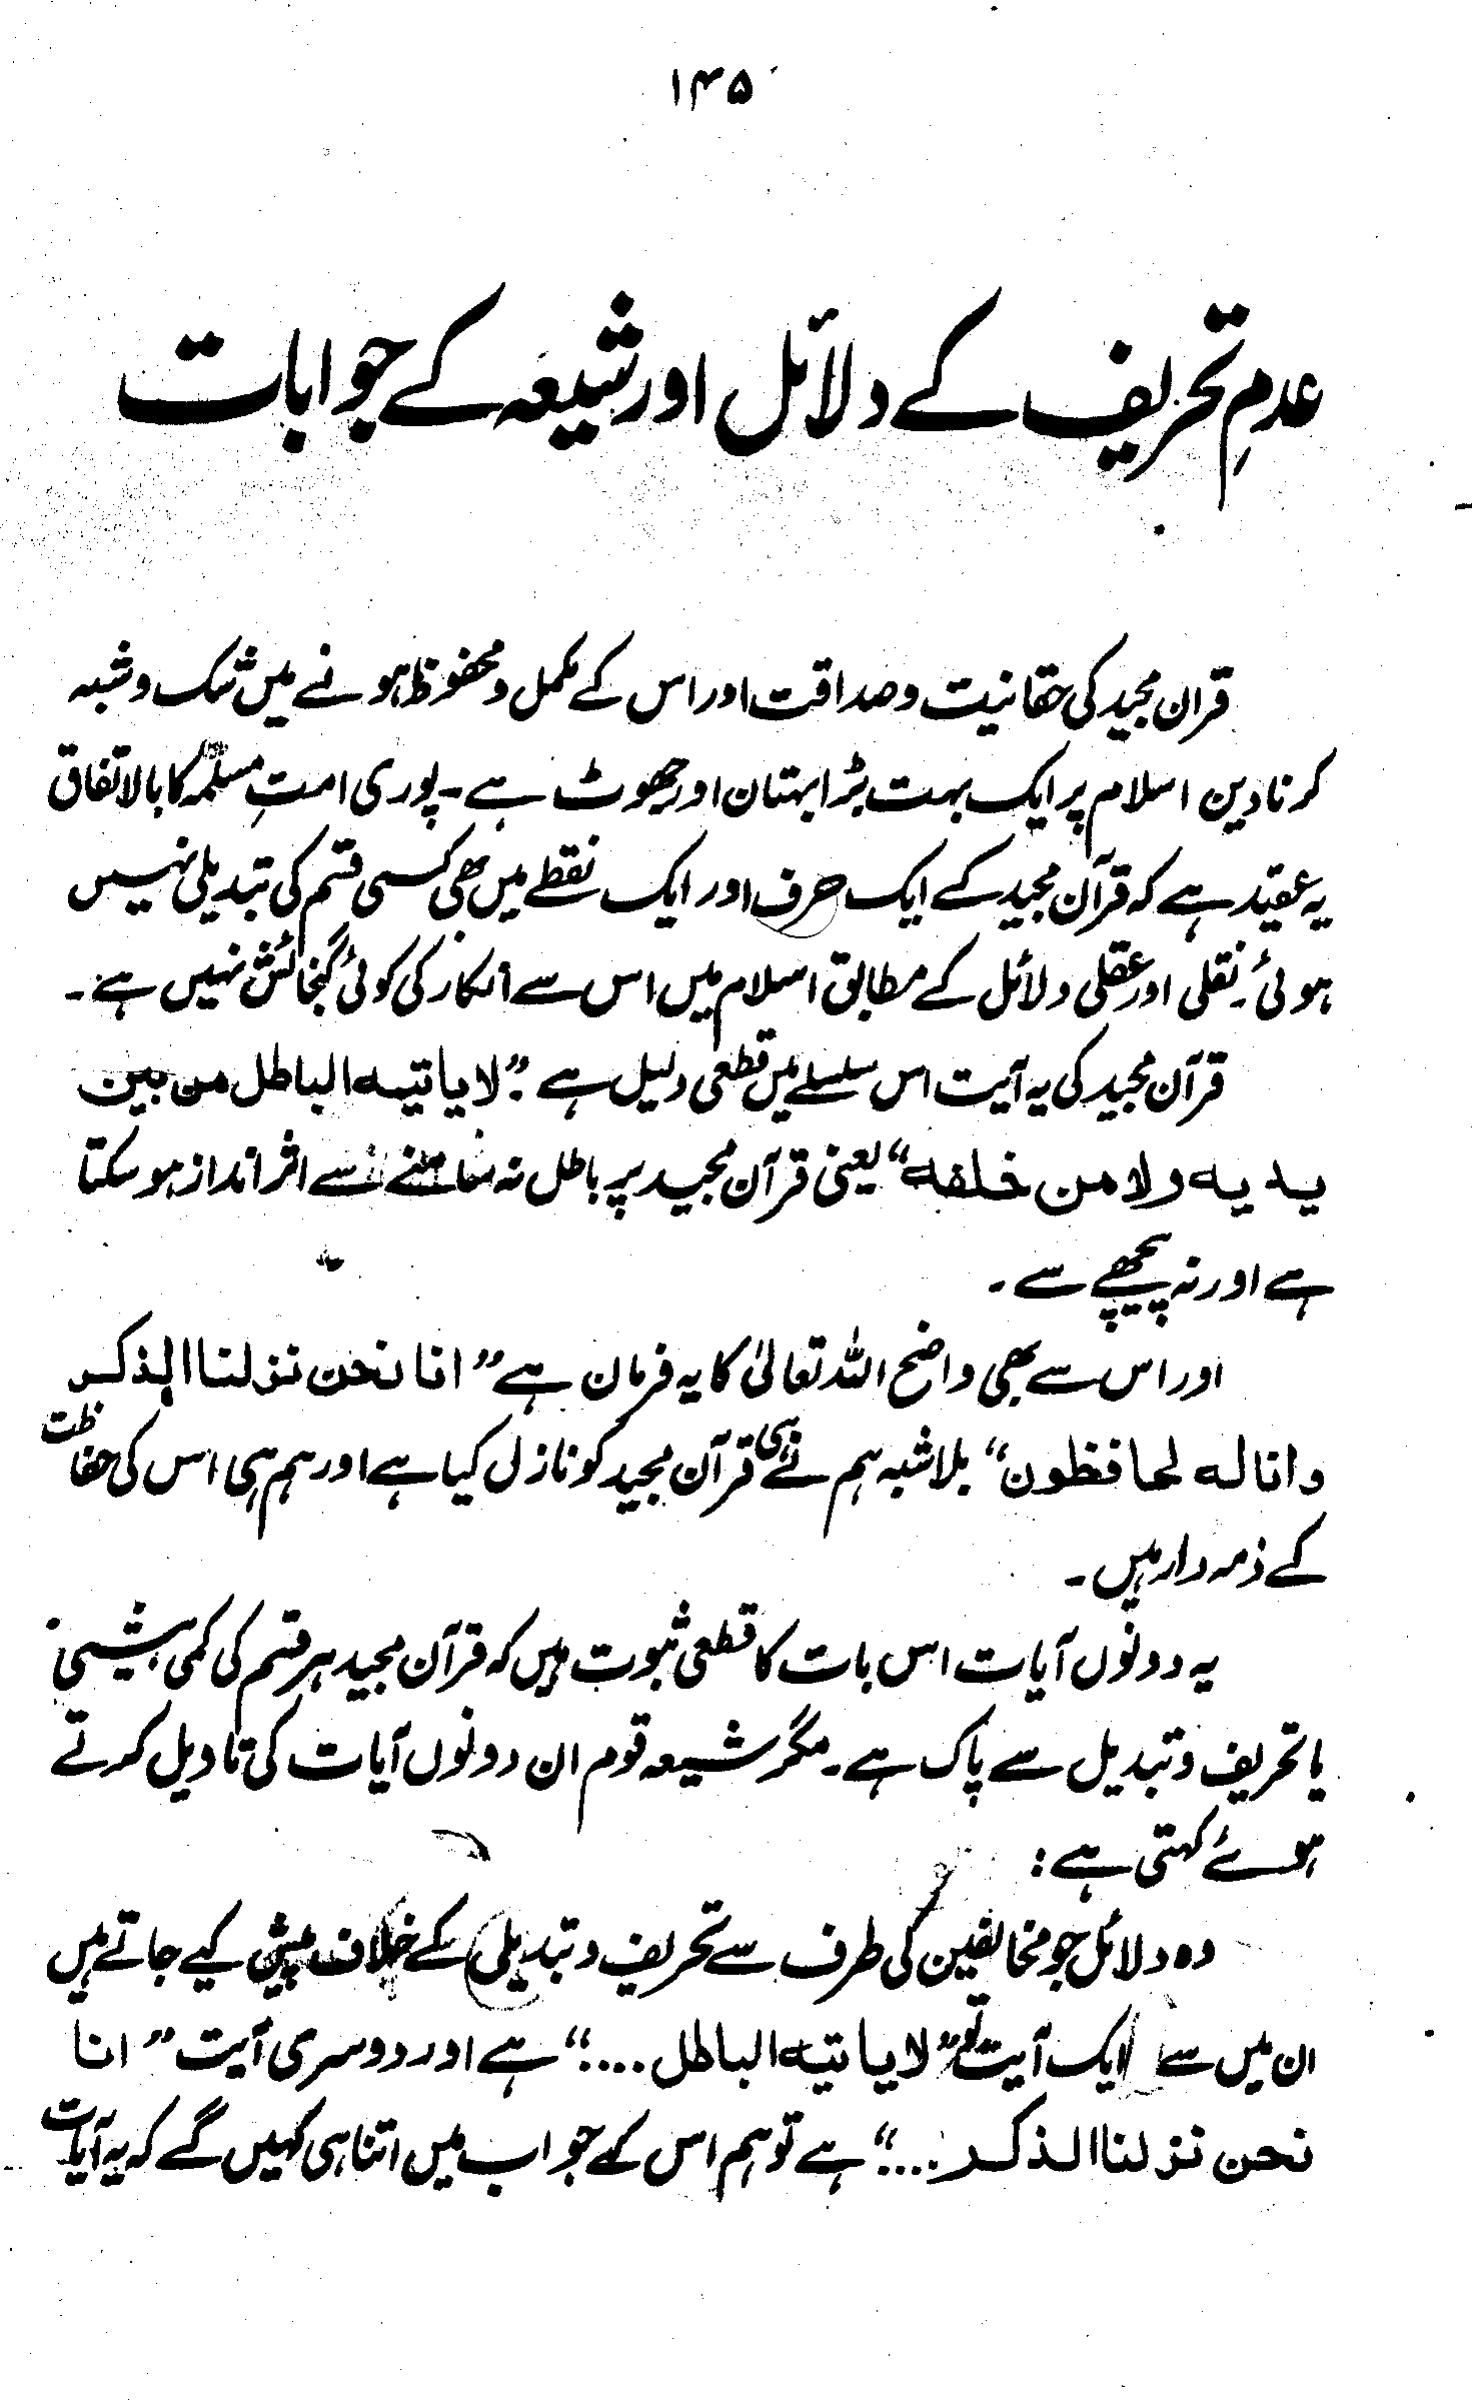 ۱۴۵
عدمِ تحریف کے دلائل اور شیعہ کے جوابات
قران مجید کی حقانیت و صداقت اور اس کے مکمل و محفوظ ہونے میں شک و شبہ
کرنا دین اسلام پر ایک بہت بڑا بہتان اور جھوٹ ہے۔ پوری امتِ مسلمہ کا بالاتفاق
یہ عقید ہے کہ قرآن مجید کے ایک حرف اور ایک نقطے میں بھی کسی قسم کی تبدیلی نہیں
ہوئی۔ نقلی اور عقلی دلائل کے مطابق اسلام میں اس سے انکار کی کوئی گنجائش نہیں ہے۔
قرآن مجید کی یہ آیت اس سلسلے میں قطعی دلیل ہے : ”لا یاتیہ الباطل من بین
یدیہ ولا من خلفہ“ یعنی قرآن مجید پر باطل نہ سامنے سے اثر انداز ہو سکتا
ہے اور نہ پیچھے سے۔
اور اس سے بھی واضح اللہ تعالیٰ کا یہ فرمان ہے ”انا نحن نزلنا الذکر
وانا لہ لحافظون“ بلاشبہ ہم نے ہی قرآن مجید کو نازل کیا ہے اور ہم ہی اس کی حفاظت
کے ذمہ دار ہیں۔
یہ دونوں آیات اس بات کا قطعی ثبوت ہیں کہ قرآن مجید ہر قسم کی کمی بیشی
یا تحریف و تبدیل سے پاک ہے۔ مگر شیعہ قوم ان دونوں آیات کی تاویل کرتے
ہوئے کہتی ہے :
وہ دلائل جو مخالفین کی طرف سے تحریف و تبدیلی کے خلاف پیش کیے جاتے ہیں
ان میں سے ایک آیت تو ”لا یاتیہ الباطل....“ ہے اور دوسری آیت ”انا
نحن نزلنا الذکر....“ ہے تو ہم اس کے جواب میں اتنا ہی کہیں گے کہ یہ آیات